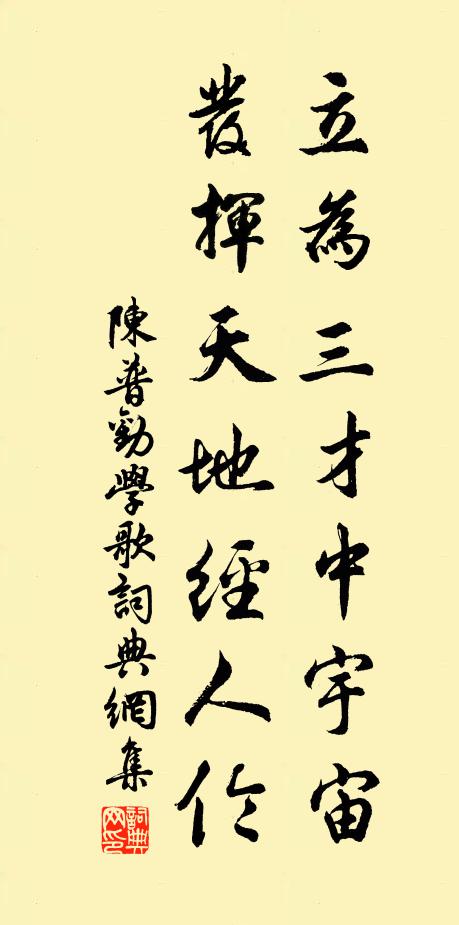 立為三才中宇宙
發揮天地經人伦
陳普勸學歌詞典網集
詞典网印